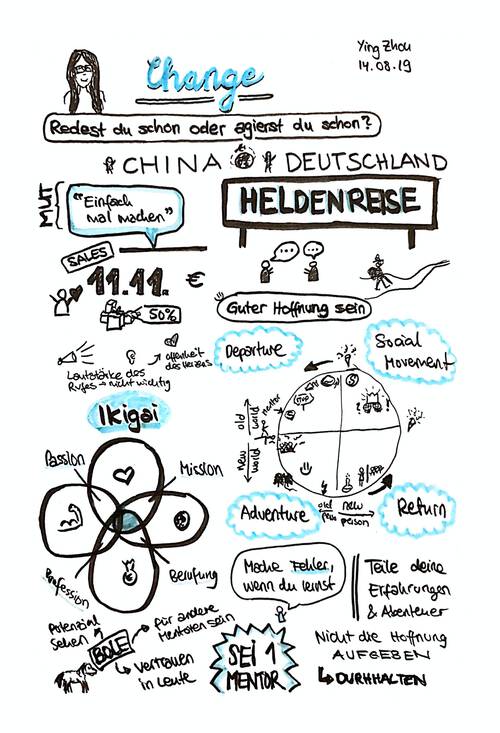 Ying Zhou
14.08.19
Change
Redest du schon oder agierst du schon?
CHINA DEUTSCHLAND
MUT
"Einfach
mal machen"
HELDENREISE
SALES
11.11. €
50%
Guter Hoffnung sein
Lautstärke des
Rufes → nicht wichtig
offenheit
des Herzens
Departure
Social
Movement
Ikigai
old world
new world
mentor
STOP
Passion
Mission
Profession
Berufung
Adventure
old
new
person
Return
Mache Fehler,
wenn du lernst
Teile deine
Erfahrungen
& Abenteuer
Potenzial
sehen
für andere
Mentoren sein
BOLE
Vertrauen
in Leute
SEI 1
MENTOR
Nicht die Hoffnung
AUFGEBEN
↳ DURHHALTEN